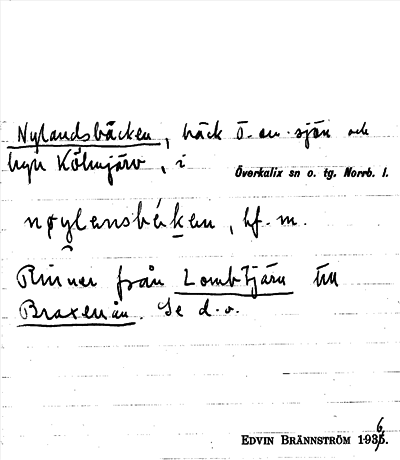 Nylandsbäcken, bäck ö. om sjön och
byn Kölmjärv, i
Överkalix sn o. tg. Norrb. l.
nøylensbéken, bf. m.
Rinner från Lombtjärn till
Braxenån. Se d. o.
EDVIN BRÄNNSTRÖM 1936.